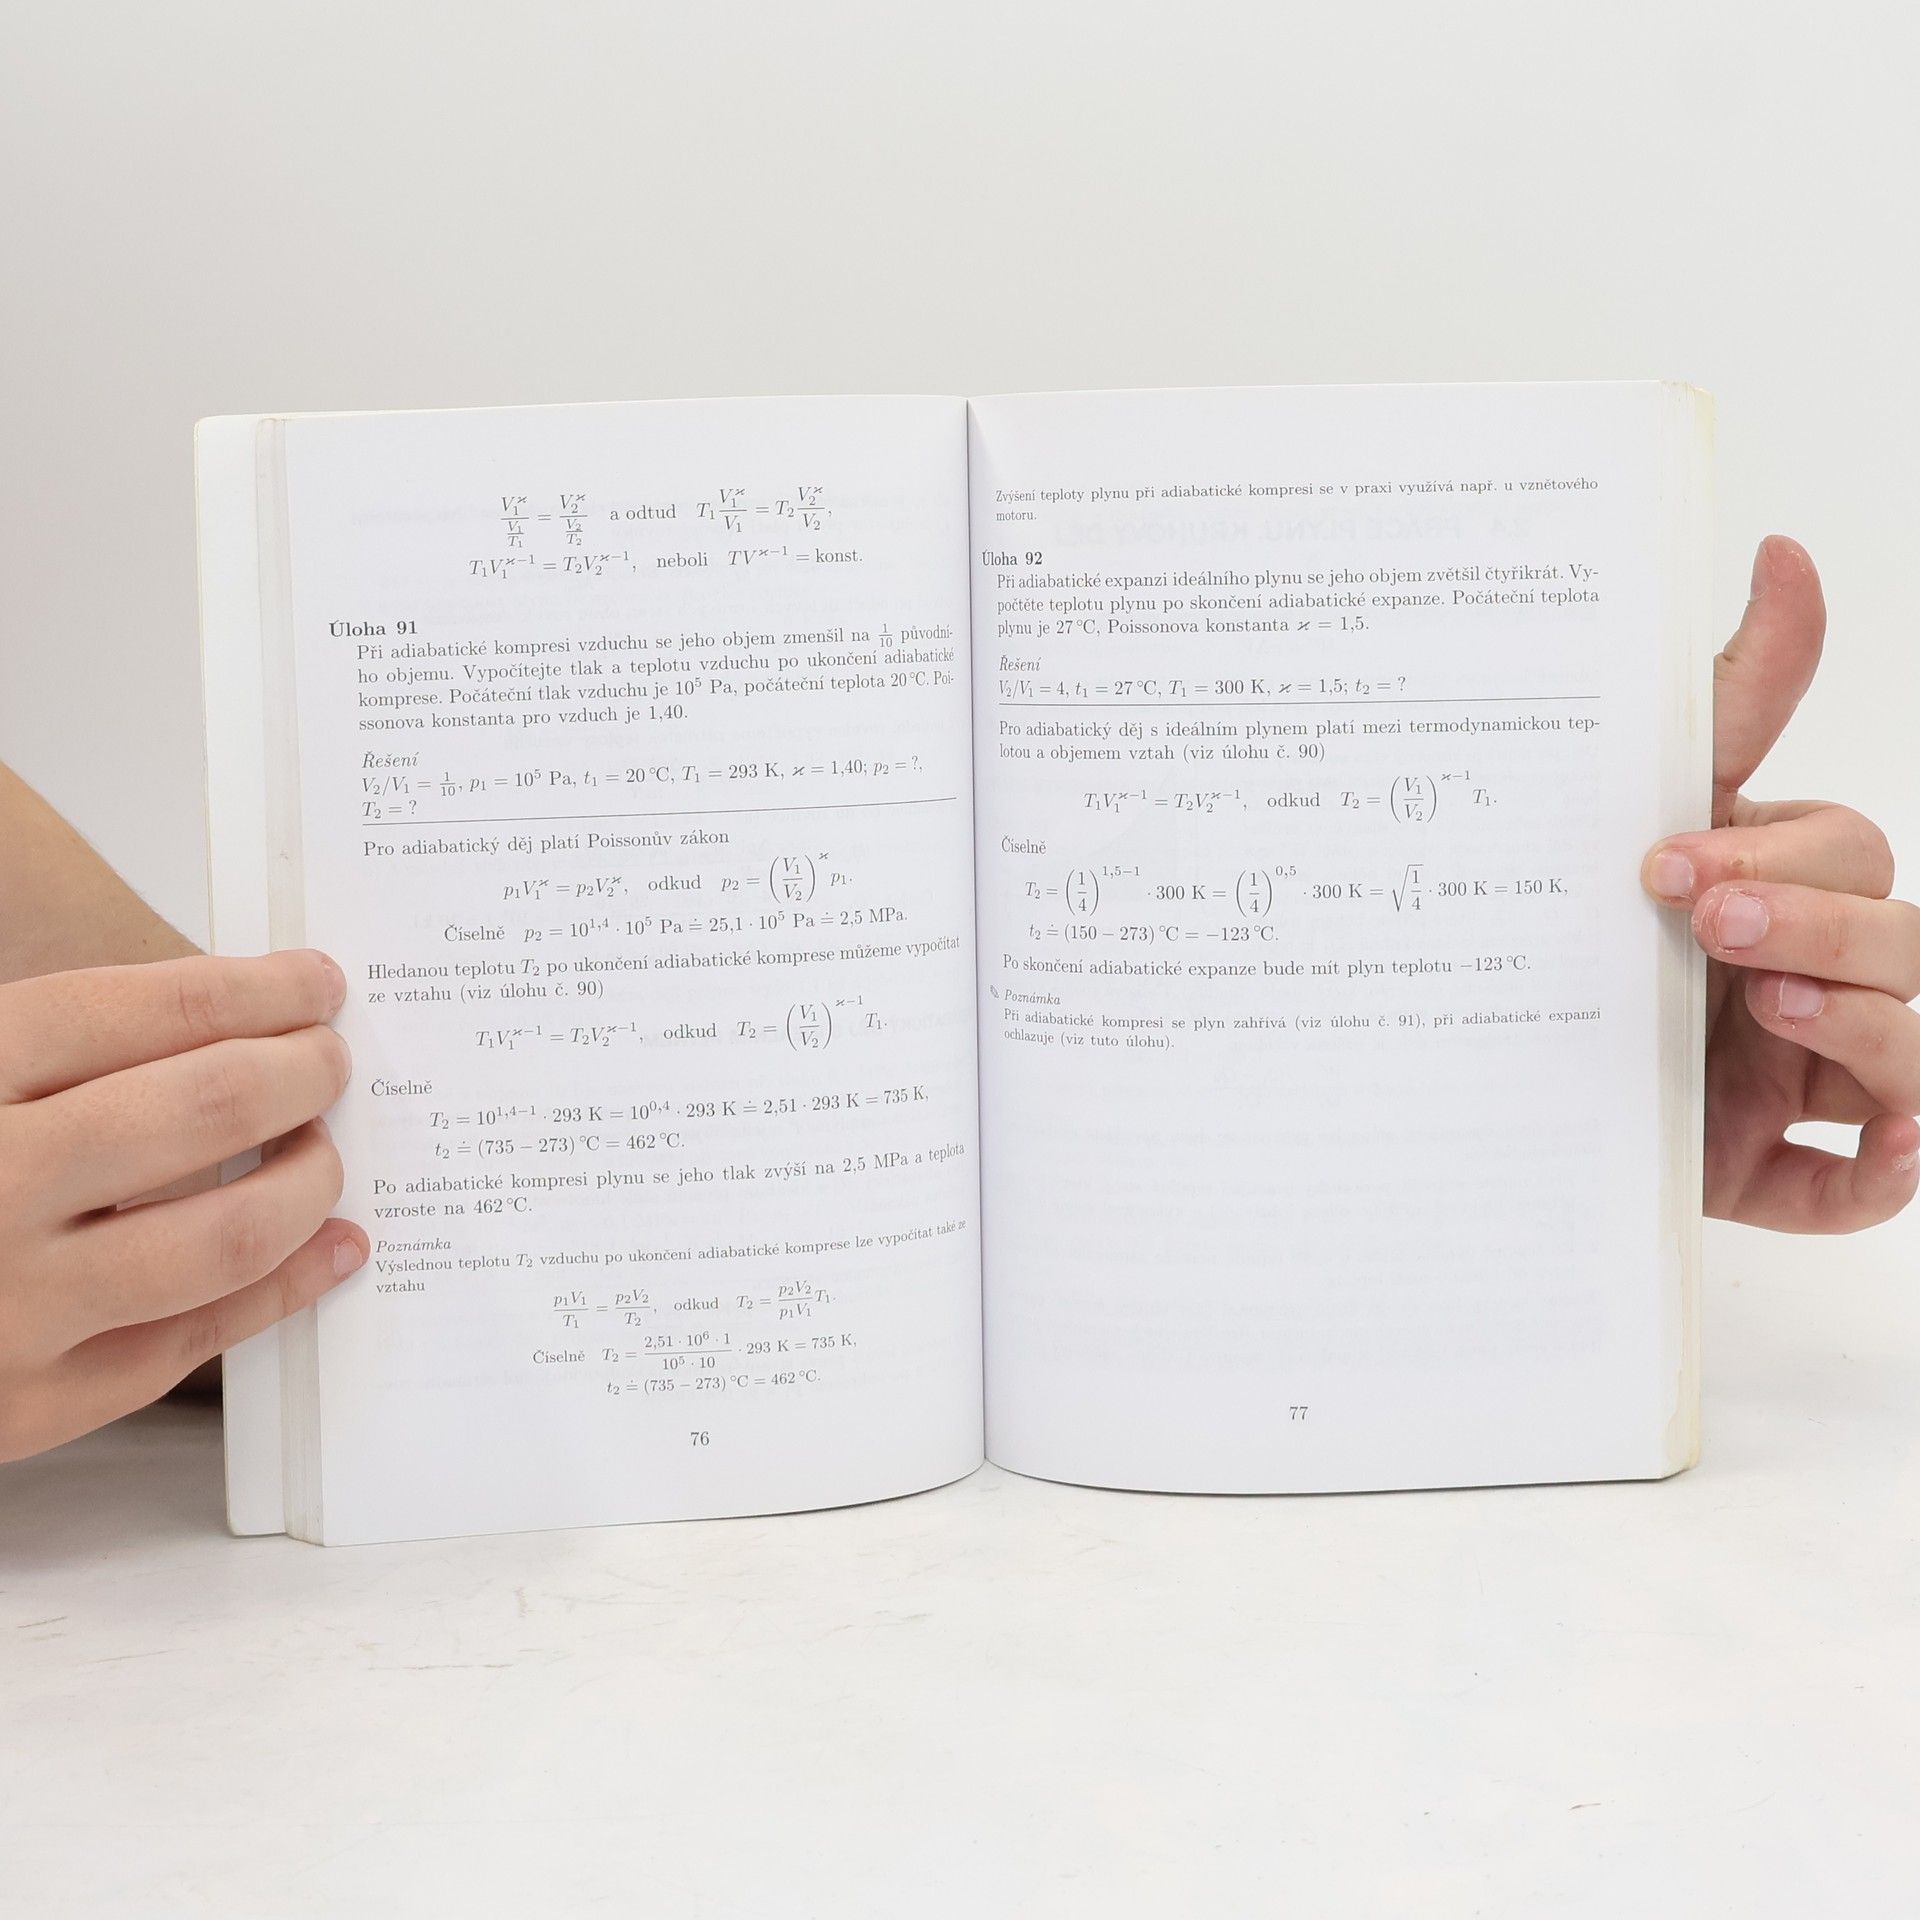 V₁^ϰ/(V₁/T₁) = V₂^ϰ/(V₂/T₂) a odtud T₁ V₁^ϰ/V₁ = T₂ V₂^ϰ/V₂,
T₁V₁^(ϰ−1) = T₂V₂^(ϰ−1), neboli TV^(ϰ−1) = konst.
Úloha 91
Při adiabatické kompresi vzduchu se jeho objem zmenšil na 1/10 původní-
ho objemu. Vypočítejte tlak a teplotu vzduchu po ukončení adiabatické
komprese. Počáteční tlak vzduchu je 10⁵ Pa, počáteční teplota 20 °C. Poi-
ssonova konstanta pro vzduch je 1,40.
Řešení
V₂/V₁ = 1/10, p₁ = 10⁵ Pa, t₁ = 20 °C, T₁ = 293 K, ϰ = 1,40; p₂ = ?,
T₂ = ?
Pro adiabatický děj platí Poissonův zákon
p₁V₁^ϰ = p₂V₂^ϰ, odkud p₂ = (V₁/V₂)^ϰ p₁.
Číselně p₂ = 10^1,4 · 10⁵ Pa ≐ 25,1 · 10⁵ Pa ≐ 2,5 MPa.
Hledanou teplotu T₂ po ukončení adiabatické komprese můžeme vypočítat
ze vztahu (viz úlohu č. 90)
T₁V₁^(ϰ−1) = T₂V₂^(ϰ−1), odkud T₂ = (V₁/V₂)^(ϰ−1) T₁.
Číselně
T₂ = 10^(1,4−1) · 293 K = 10^0,4 · 293 K ≐ 2,51 · 293 K = 735 K,
t₂ ≐ (735 − 273) °C = 462 °C.
Po adiabatické kompresi plynu se jeho tlak zvýší na 2,5 MPa a teplota
vzroste na 462 °C.
Poznámka
Výslednou teplotu T₂ vzduchu po ukončení adiabatické komprese lze vypočítat také ze
vztahu
p₁V₁/T₁ = p₂V₂/T₂, odkud T₂ = p₂V₂/p₁V₁ T₁.
Číselně T₂ = (2,51 · 10⁶ · 1)/(10⁵ · 10) · 293 K = 735 K,
t₂ ≐ (735 − 273) °C = 462 °C.
76
Zvýšení teploty plynu při adiabatické kompresi se v praxi využívá např. u vznětového
motoru.
Úloha 92
Při adiabatické expanzi ideálního plynu se jeho objem zvětšil čtyřikrát. Vy-
počtěte teplotu plynu po skončení adiabatické expanze. Počáteční teplota
plynu je 27 °C, Poissonova konstanta ϰ = 1,5.
Řešení
V₂/V₁ = 4, t₁ = 27 °C, T₁ = 300 K, ϰ = 1,5; t₂ = ?
Pro adiabatický děj s ideálním plynem platí mezi termodynamickou tep-
lotou a objemem vztah (viz úlohu č. 90)
T₁V₁^(ϰ−1) = T₂V₂^(ϰ−1), odkud T₂ = (V₁/V₂)^(ϰ−1) T₁.
Číselně
T₂ = (1/4)^(1,5−1) · 300 K = (1/4)^0,5 · 300 K = √(1/4) · 300 K = 150 K,
t₂ ≐ (150 − 273) °C = −123 °C.
Po skončení adiabatické expanze bude mít plyn teplotu −123 °C.
Poznámka
Při adiabatické kompresi se plyn zahřívá (viz úlohu č. 91), při adiabatické expanzi
ochlazuje (viz tuto úlohu).
77